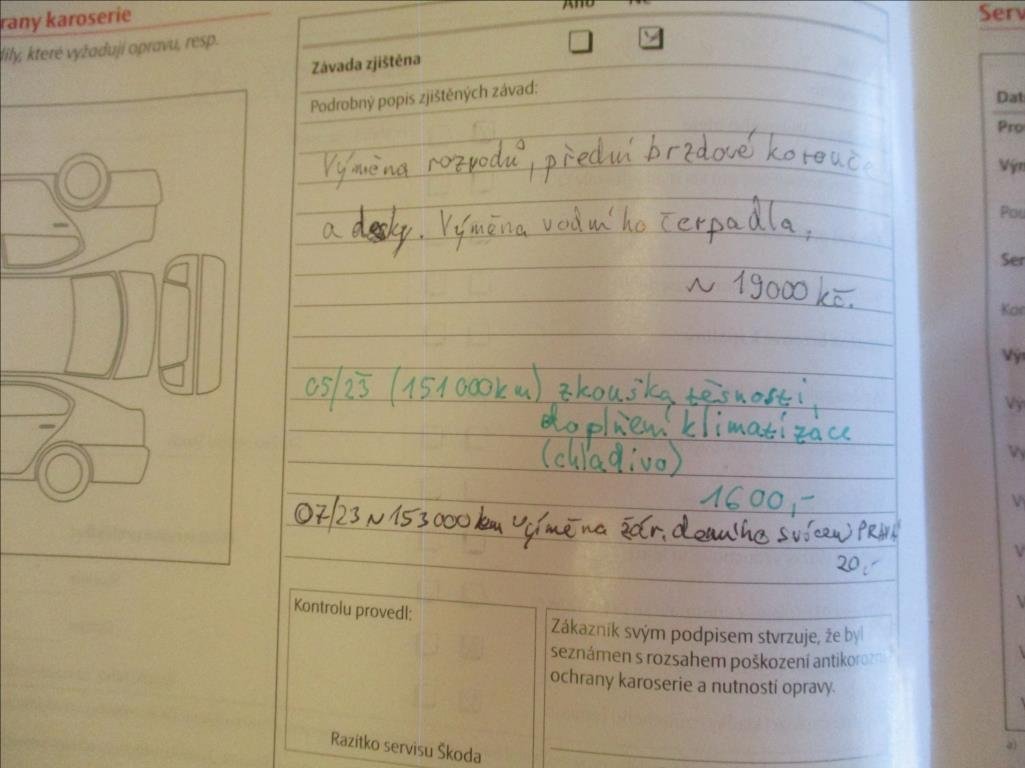 rany karoserie
díly, které vyžadují opravu, resp.
Ano Ne
Závada zjištěna
Podrobný popis zjištěných závad:
Výměna rozvodů, přední brzdové kotouče
a desky. Výměna vodního čerpadla,
~ 19000 kč.
05/23 (151 000km) zkouška těsnosti,
doplnění klimatizace
(chladivo)
1600,-
07/23 ~ 153000 km výměna žár. denního svícení PRAVÁ
20,-
Kontrolu provedl:
Razítko servisu Škoda
Zákazník svým podpisem stvrzuje, že byl
seznámen s rozsahem poškození antikorozní
ochrany karoserie a nutností opravy.
Serv
Dat
Pro
Výr
Pou
Ser
Kon
Vý
Vý
Vy
V
a)